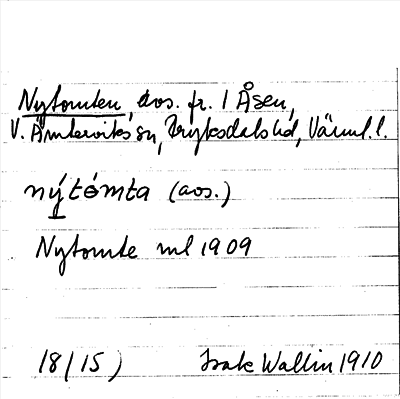 Nytomten, avs. fr. 1 Åsen,
V. Ämterviks sn, Fryksdals hd, Värml. l.
nýtómta (avs.)
Nytomte ml 1909
18/15) Isak Wallin 1910